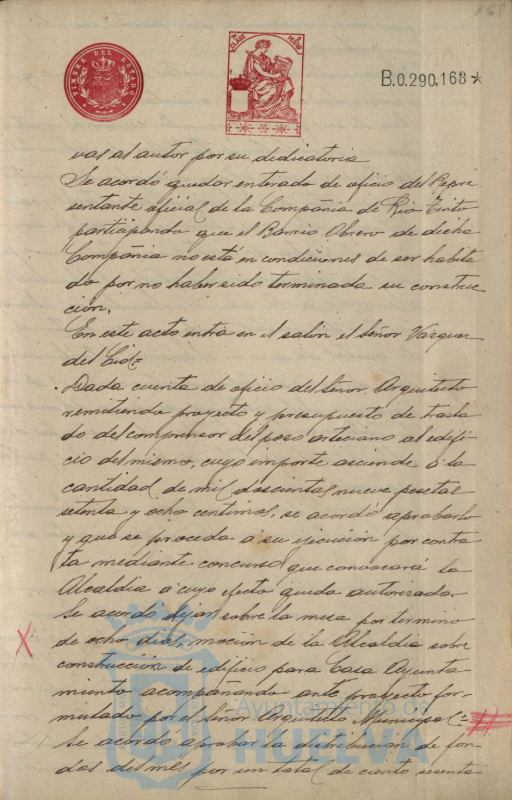 TIMBRE DEL ESTADO
B.0.290,168*
vas al autor por su dedicatoria
Se acordó quedar enterado de oficio del Repre
sentante oficial de la Compañia de Rio Tinto
participando que el Barrio Obrero de dicha
Compañia no está en condiciones de ser habita
do por no haber sido terminada su construc
ción.
En este acto entra en el salón el Señor Vazquez
del Cid=
Dada cuenta de oficio del Señor Arquitecto
remitiendo proyecto y presupuesto de trasla
do del compresor del pozo artesiano al edifi-
cio del mismo, cuyo importe asciende á la
cantidad de mil doscientas nueve pesetas
setenta y ocho centimos, se acordó aprobarlo
y que se proceda a su ejecución por contra
ta mediante concurso que convocará la
Alcaldia á cuyo efecto queda autorizada
Se acordó dejar sobre la mesa por termino
de ocho dias, moción de la Alcaldia sobre
construcción de edificio para Casa Ayunta
miento acompañando ante proyecto for-
mulado por el Señor Arquitecto Municipal=
Se acordó aprobar la distribucion de fon-
dos del mes por un total de ciento, sesenta
Ayuntamiento de
HUELVA